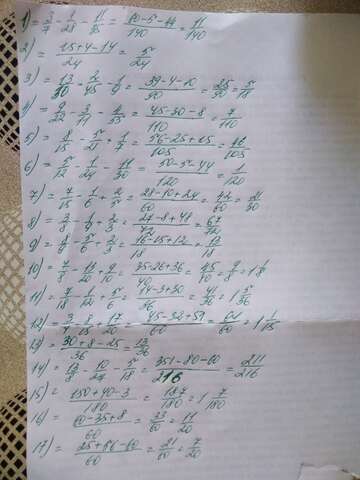 1) 3/7 - 1/28 - 11/35 = (60-5-44)/140 = 11/140
2) = (15+4-14)/24 = 5/24
3) = 13/30 - 2/45 - 1/9 = (39-4-10)/90 = 25/90 = 5/18
4) = 9/22 - 3/11 - 4/55 = (45-30-8)/110 = 7/110
5) = 8/15 - 5/21 + 1/7 = (56-25+15)/105 = 46/105
6) = 5/12 - 1/24 - 11/30 = (50-5-44)/120 = 1/120
7) = 7/15 - 1/6 + 2/5 = (28-10+24)/60 = 42/60 = 21/30
8) = 3/8 - 1/9 + 2/3 = (27-8+48)/72 = 67/72
9) = 8/9 - 5/6 + 2/3 = (16-15+12)/18 = 13/18
10) = 7/8 - 13/20 + 9/10 = (35-26+36)/40 = 45/40 = 9/8 = 1 1/8
11) = 7/18 - 1/12 + 5/6 = (14-3+30)/36 = 41/36 = 1 5/36
12) = 3/4 - 8/15 + 17/20 = (45-32+51)/60 = 64/60 = 1 1/15
13) = (30+8-25)/36 = 13/36
14) = 13/8 - 10/27 - 5/18 = (351-80-60)/216 = 211/216
15) = (150+40-3)/180 = 187/180 = 1 7/180
16) = (60-35+8)/60 = 33/60 = 11/20
17) = (25+56-60)/60 = 21/60 = 7/20